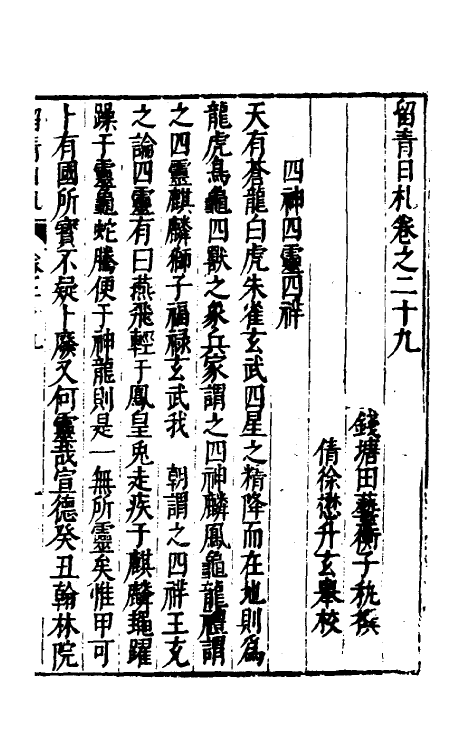 留青日札卷之二十九
錢塘田藝蘅子秇撰
倩徐懋升玄舉校
四神四靈四祥
天有蒼龍白虎朱雀玄武四星之精降而在地則爲
龍虎鳥龜四獸之象兵家謂之四神麟鳳龜龍禮謂
之四靈麒麟獅子福祿玄武我　朝謂之四祥王充
之論四靈有曰燕飛輕于鳳皇兎走疾于麒麟䵷躍
躁于靈龜蛇騰便于神龍則是一無所靈矣惟甲可
卜有國所寳不疑卜廢又何靈哉宣德癸丑翰林院
留青日札　卷二十九